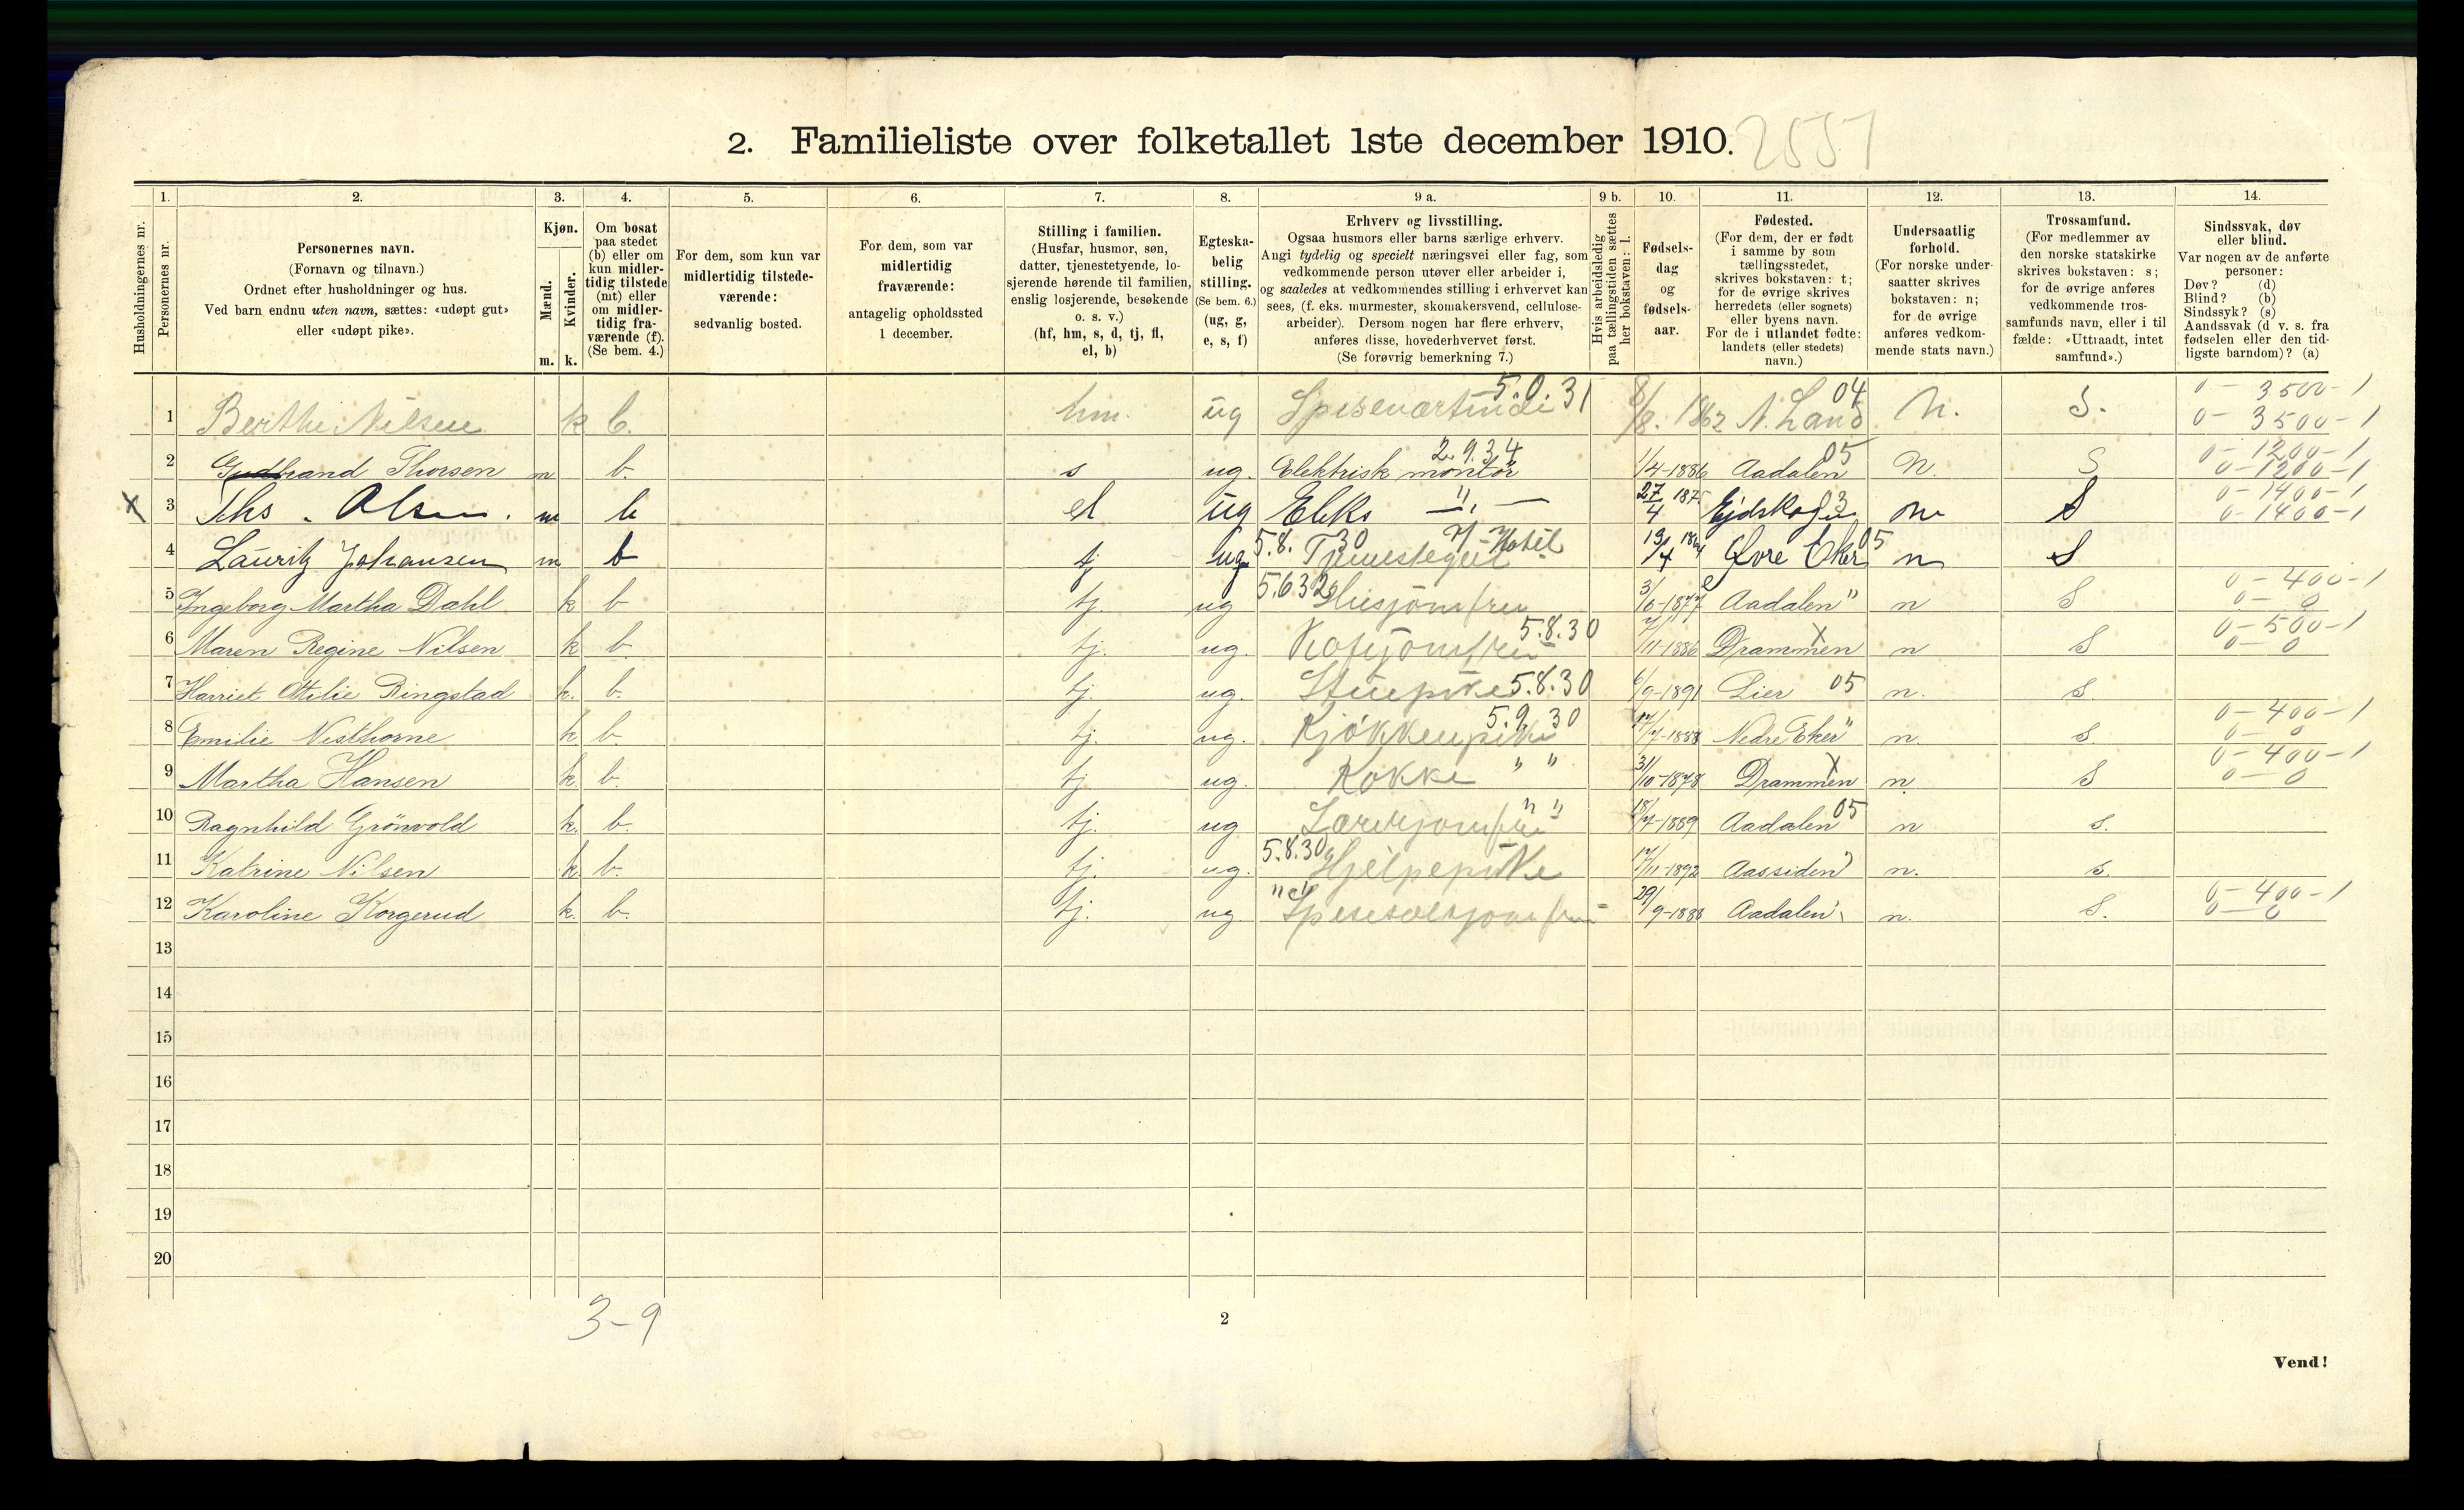 2. Familieliste over folketallet 1ste december 1910. 2557
Husholdningernes nr.
1. Personernes nr.
2. Personernes navn.
(Fornavn og tilnavn.)
Ordnet efter husholdninger og hus.
Ved barn endnu uten navn, sættes: «udøpt gut»
eller «udøpt pike».
3. Kjøn.
Mænd. m.
Kvinder. k.
4. Om bosat
paa stedet
(b) eller om
kun midler-
tidig tilstede
(mt) eller
om midler-
tidig fra-
værende (f).
(Se bem. 4.)
5. For dem, som kun var
midlertidig tilstede-
værende:
sedvanlig bosted.
6. For dem, som var
midlertidig
fraværende:
antagelig opholdssted
1 december.
7. Stilling i familien.
(Husfar, husmor, søn,
datter, tjenestetyende, lo-
sjerende hørende til familien,
enslig losjerende, besøkende
o. s. v.)
(hf, hm, s, d, tj, fl,
el, b)
8. Egteska-
belig
stilling.
(Se bem. 6.)
(ug, g,
e, s, f)
9 a. Erhverv og livsstilling.
Ogsaa husmors eller barns særlige erhverv.
Angi tydelig og specielt næringsvei eller fag, som
vedkommende person utøver eller arbeider i,
og saaledes at vedkommendes stilling i erhvervet kan
sees, (f. eks. murmester, skomakersvend, cellulose-
arbeider). Dersom nogen har flere erhverv,
anføres disse, hovederhvervet først.
(Se forøvrig bemerkning 7.)
9 b. Hvis arbeidsledig
paa tællingstiden sættes
her bokstaven: l.
10. Fødsels-
dag
og
fødsels-
aar.
11. Fødested.
(For dem, der er født
i samme by som
tællingsstedet,
skrives bokstaven: t;
for de øvrige skrives
herredets (eller sognets)
eller byens navn.
For de i utlandet fødte:
landets (eller stedets)
navn.)
12. Undersaatlig
forhold.
(For norske under-
saatter skrives
bokstaven: n;
for de øvrige
anføres vedkom-
mende stats navn.)
13. Trossamfund.
(For medlemmer av
den norske statskirke
skrives bokstaven: s;
for de øvrige anføres
vedkommende tros-
samfunds navn, eller i til
fælde: «Uttraadt, intet
samfund».)
14. Sindssvak, døv
eller blind.
Var nogen av de anførte
personer:
Døv? (d)
Blind? (b)
Sindssyk? (s)
Aandssvak (d v. s. fra
fødselen eller den tid-
ligste barndom)? (a)
5.0.31 04 0 - 3500 - 1
1 Berthe Nilsen k b. hm. ug Spisevertinde 8/8. 1862 N. Land n. S. 0 - 3500 - 1
2.9.34 05 0 - 1200 - 1
2 Gudbrand Thorsen m b. s ug. Elektrisk montör 1/4-1886 Aadalen n. S 0 - 1200 - 1
0 - 1400 - 1
X 3 Ths. Olsen. m b el ug Eleks — " — 27/4 1875 Ejdskogen 03 n S 0 - 1400 - 1
5.8.30
4 Lauritz Johansen m b tj ug Tjenestegut v/ Hotel 19/4 Øvre Eker 05 n S
5.6.32 0 - 400 - 1
5 Ingeborg Martha Dahl k b tj. ug Husjomfru 3/6-1877 Aadalen " n S 0 - 0
5.8.30 X 0 - 500 - 1
6 Maren Regine Nilsen k b. tj. ug. 7/11-1886 Drammen n S 0 - 0
7 Harriet Otilie Ringstad k. b. tj. ug. Stuepike 5.8.30 6/9-1891 Lier 05 n. s.
5.9.30 0 - 400 - 1
8 Emilie Nesthorne k b. tj. ug. Kjökkenpike 17/7-1888 Nedre Eker " n. s. 0 - 0
X 0 - 400 - 1
9 Martha Hansen k. b. tj ug. Kokke " " 31/10-1878 Drammen n. S 0 - 0
10 Ragnhild Grönvold k. b. tj. ug Lærejomfru " " 18/7-1889 Aadalen 05 n s.
5.8.30
11 Katrine Nilsen k. b. tj. ug. Hjelpepike 17/11-1892 Aassiden " n. s.
" " 0 - 400 - 1
12 Karoline Korgerud k. b. tj. ug Spisesalsjomfru 29/9-1888 Aadalen " n. S. 0 - 0
13
14
15
16
17
18
19
20
3-9
2
Vend!